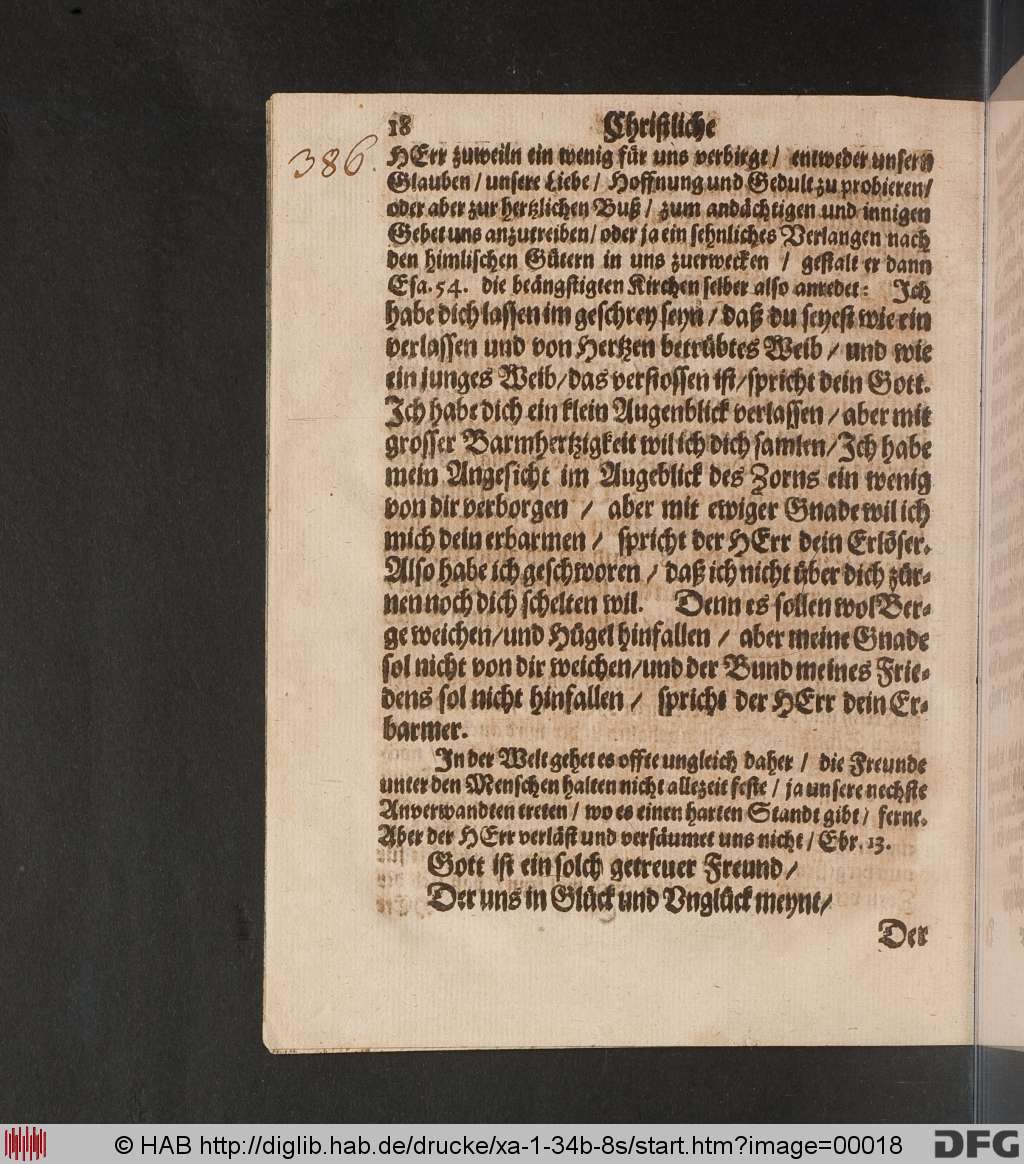 18 Christliche
386.
HErr zuweiln ein wenig für uns verbirgt / entweder unsern
Glauben / unsere Liebe / Hoffnung und Gedult zu probieren /
oder aber zur hertzlichen Buß / zum andächtigen und innigen
Gebet uns anzutreiben / oder ja ein sehnliches Verlangen nach
den himlischen Gütern in uns zuerwecken / gestalt er dann
Esa. 54. die beängstigten Kirchen selber also anredet: Ich
habe dich lassen im geschrey seyn / daß du seyest wie ein
verlassen und von Hertzen betrübtes Weib / und wie
ein junges Weib / das verstossen ist / spricht dein Gott.
Ich habe dich ein klein Augenblick verlassen / aber mit
grosser Barmhertzigkeit wil ich dich samlen / Ich habe
mein Angesicht im Augeblick des Zorns ein wenig
von dir verborgen / aber mit ewiger Gnade wil ich
mich dein erbarmen / spricht der HErr dein Erlöser.
Also habe ich geschworen / daß ich nicht über dich zür-
nen noch dich schelten wil. Denn es sollen wol Ber-
ge weichen / und Hügel hinfallen / aber meine Gnade
sol nicht von dir weichen / und der Bund meines Frie-
dens sol nicht hinfallen / spricht der HErr dein Er-
barmer.
In der Welt gehet es offte ungleich daher / die Freunde
unter den Menschen halten nicht allezeit feste / ja unsere nechste
Anverwandten treten / wo es einen harten Standt gibt / ferne.
Aber der HErr verläst und versäumet uns nicht / Ebr. 13.
Gott ist ein solch getreuer Freund /
Der uns in Glück und Vnglück meynt /
Der
© HAB http://diglib.hab.de/drucke/xa-1-34b-8s/start.htm?image=00018
DFG